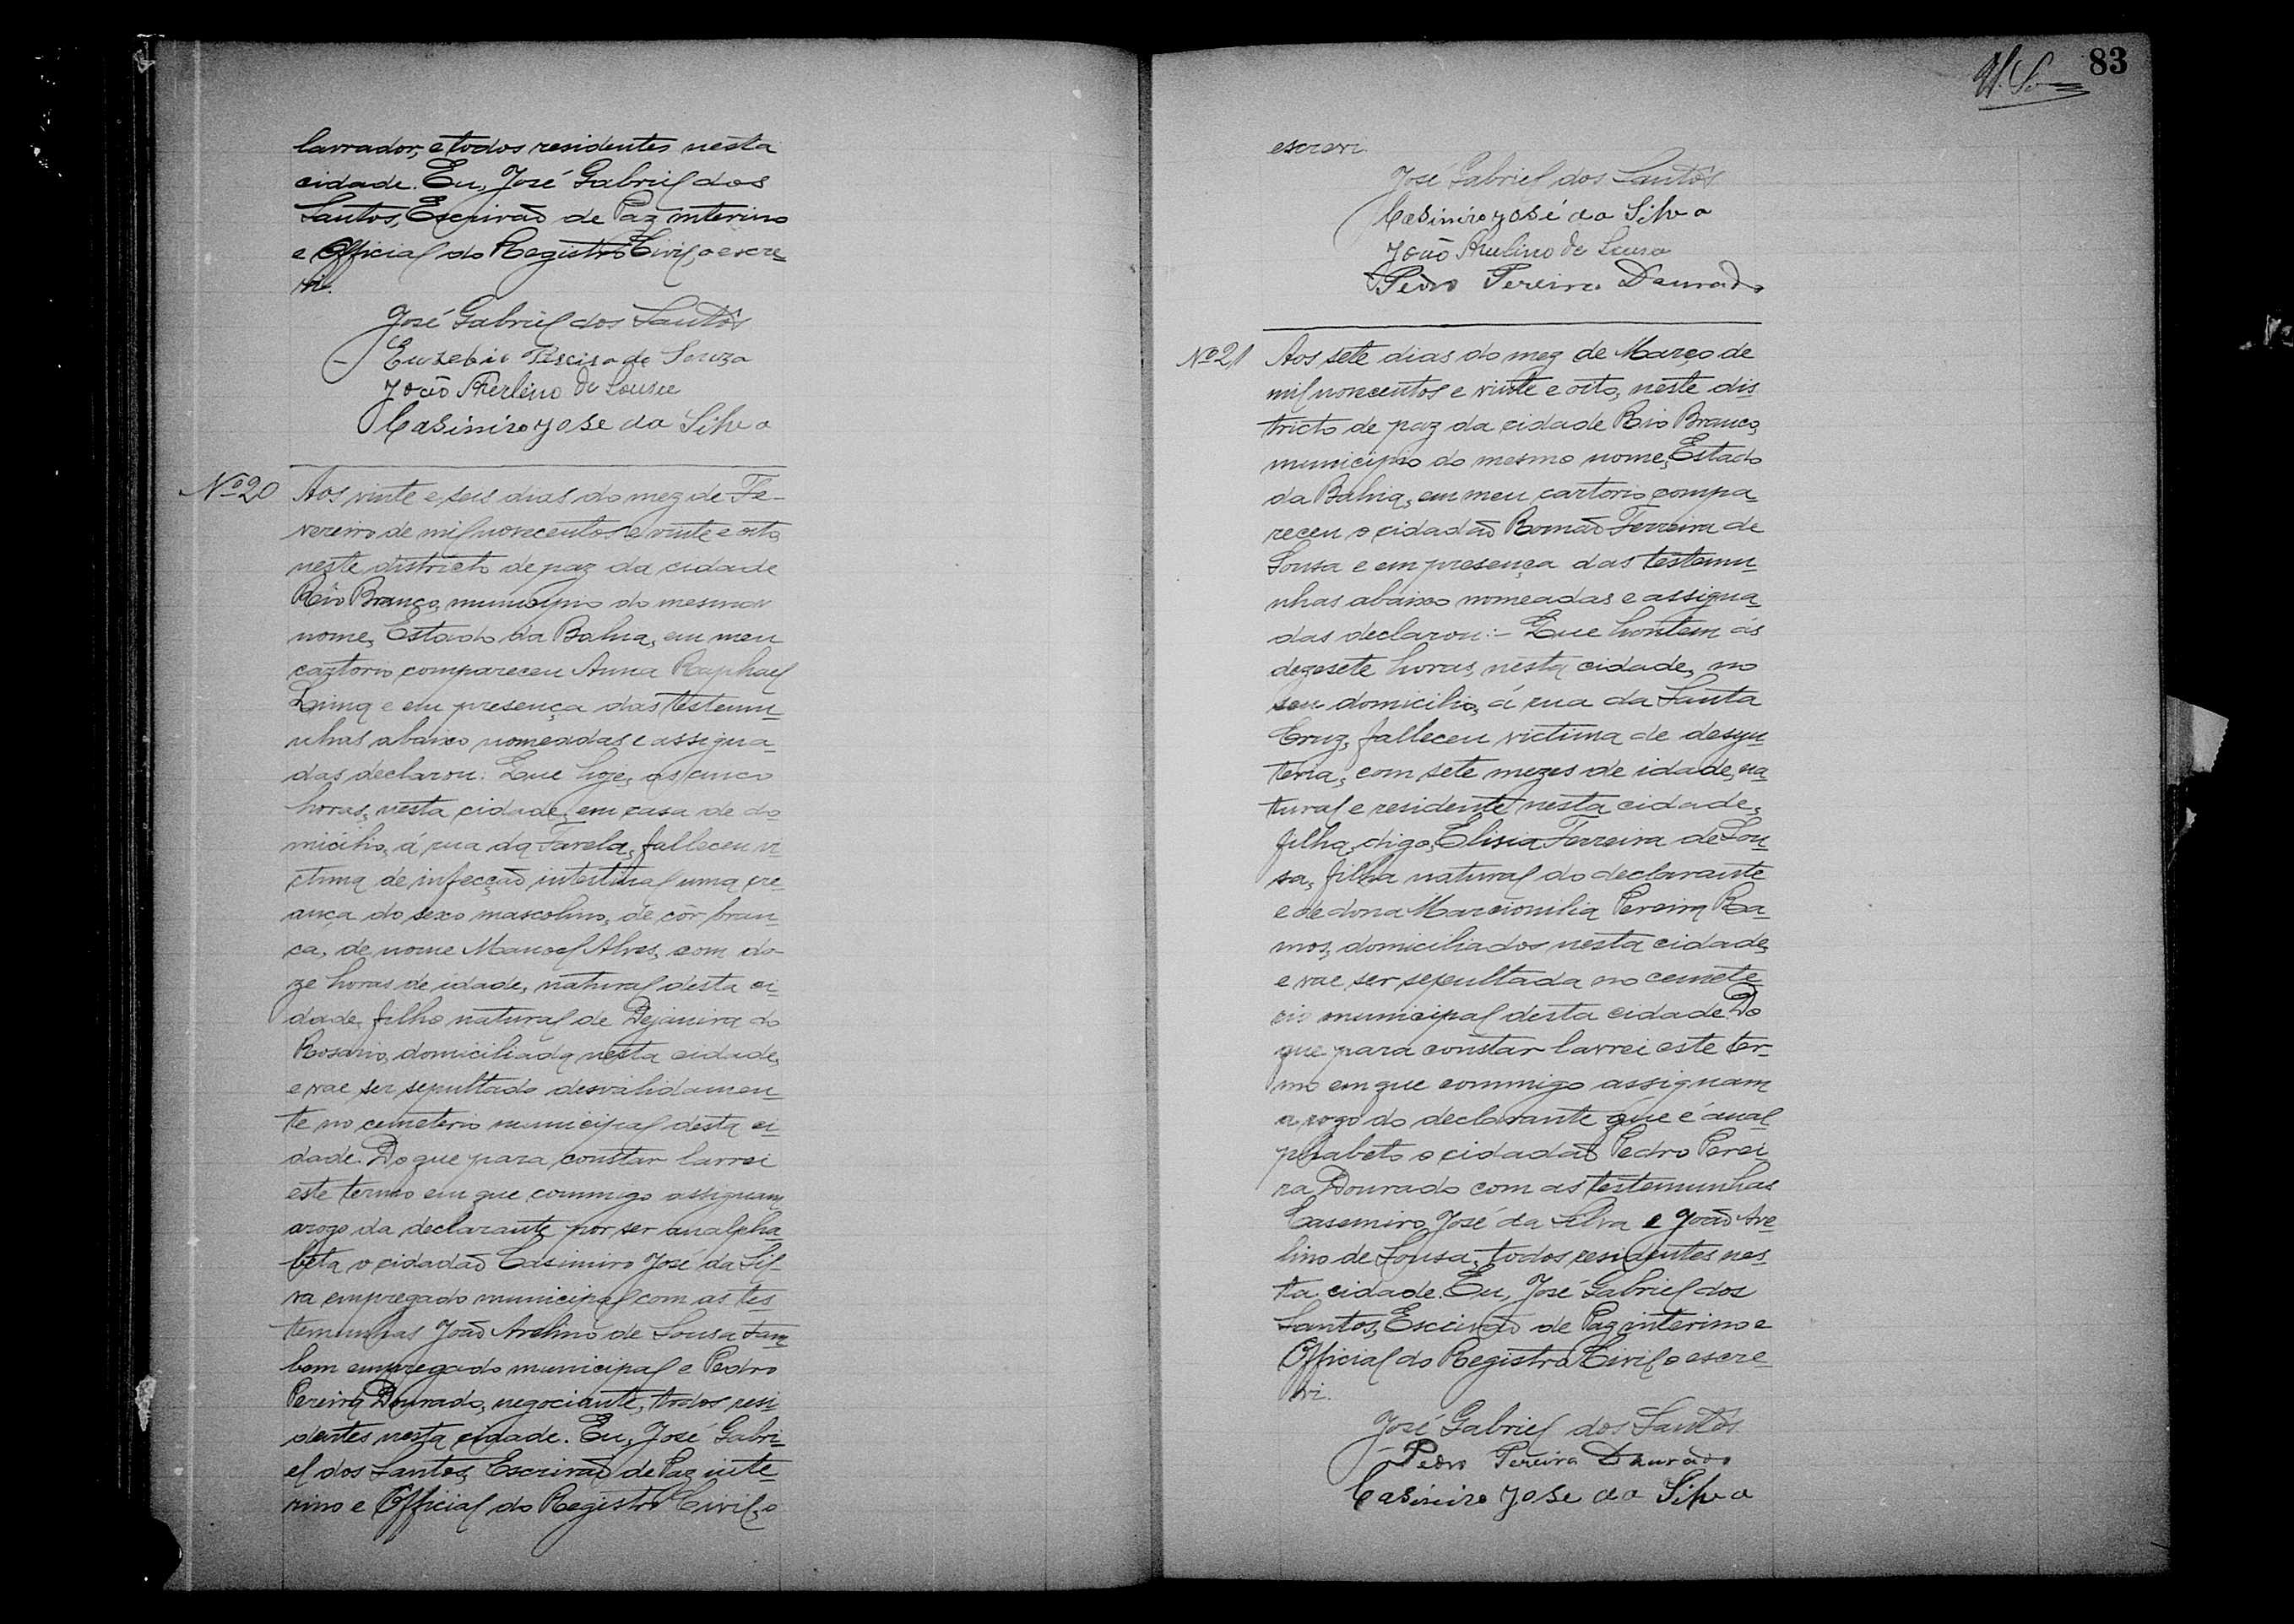 lavrador, e todos residentes nesta
cidade. Eu, José Gabriel dos
Santos, Escrivão de Paz interino
e Official do Registro Civil, o escre-
vi.
José Gabriel dos Santos
Euzebio de Souza
João Avelino de Sousa
Casimiro José da Silva
Nº 20 Aos vinte e seis dias do mez de Fe-
vereiro de mil novecentos e vinte e oito,
neste districto de paz da cidade
Rio Branco, municipio do mesmo
nome, Estado da Bahia, em meu
cartorio compareceu Anna Raphael
Lima e em presença das testemu-
nhas abaixo nomeadas e assigna-
das declarou: Que hoje, as cinco
horas, nesta cidade, em casa de do-
micilio, á rua da Favela, falleceu vi-
ctima de infecção intestinal uma cre-
ança do sexo masculino, de côr bran-
ca, de nome Manoel Alves, com do-
ze horas de idade, natural desta ci-
dade, filho natural de Dejanira do
Rosario, domiciliada nesta cidade,
e vae ser sepultado desvalidamen-
te no cemeterio municipal desta ci-
dade. Do que para constar lavrei
este termo em que commigo assignam
arogo da declarante por ser analpha-
beta o cidadão Casimiro José da Sil-
va empregado municipal com as tes-
temunhas João Avelino de Sousa tam-
bem empregado municipal e Pedro
Pereira Dourado, negociante, todos resi-
dentes nesta cidade. Eu, José Gabri-
el dos Santos, Escrivão de Paz inte-
rino e Official do Registro Civil, o
83
escrevi.
José Gabriel dos Santos
Casimiro José da Silva
João Avelino de Sousa
Pedro Pereira Dourado
Nº 21 Aos sete dias do mez de Março de
mil novecentos e vinte e oito, neste dis-
tricto de paz da cidade Rio Branco,
municipio do mesmo nome, Estado
da Bahia, em meu cartorio compa-
receu o cidadão Romão Ferreira de
Sousa e em presença das testemu-
nhas abaixo nomeadas e assigna-
das declarou:- Que hontem ás
dezesete horas, nesta cidade, no
seu domicilio, á rua da Santa
Cruz, falleceu victima de desyn-
teria, com sete mezes de idade, na-
tural e residente nesta cidade,
filha, digo, Elisia Ferreira de Sou-
sa, filha natural do declarante
e de dona Marcionilia Pereira Ra-
mos, domiciliados nesta cidade,
e vae ser sepultada no cemete-
rio municipal desta cidade. Do
que para constar lavrei este ter-
mo em que commigo assignam
a rogo do declarante que é anal-
phabeto o cidadão Pedro Perei-
ra Dourado com as testemunhas
Casemiro José da Silva e João Ave-
lino de Sousa, todos residentes nes-
ta cidade. Eu, José Gabriel dos
Santos, Escrivão de Paz interino e
Official do Registro Civil, o escre-
vi.
José Gabriel dos Santos
Pedro Pereira Dourado
Casimiro José da Silva